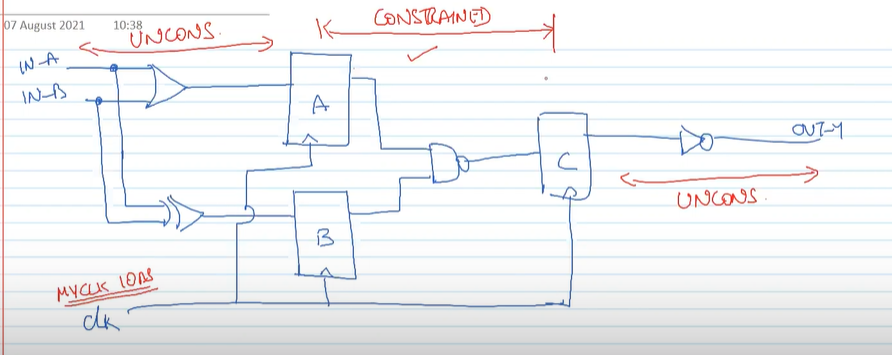 07 August 2021
10:38
UNCONS.
CONSTRAINED
IN-A
IN-B
A
B
C
OUT-Y
UNCONS.
MYCLK 10ns
clk